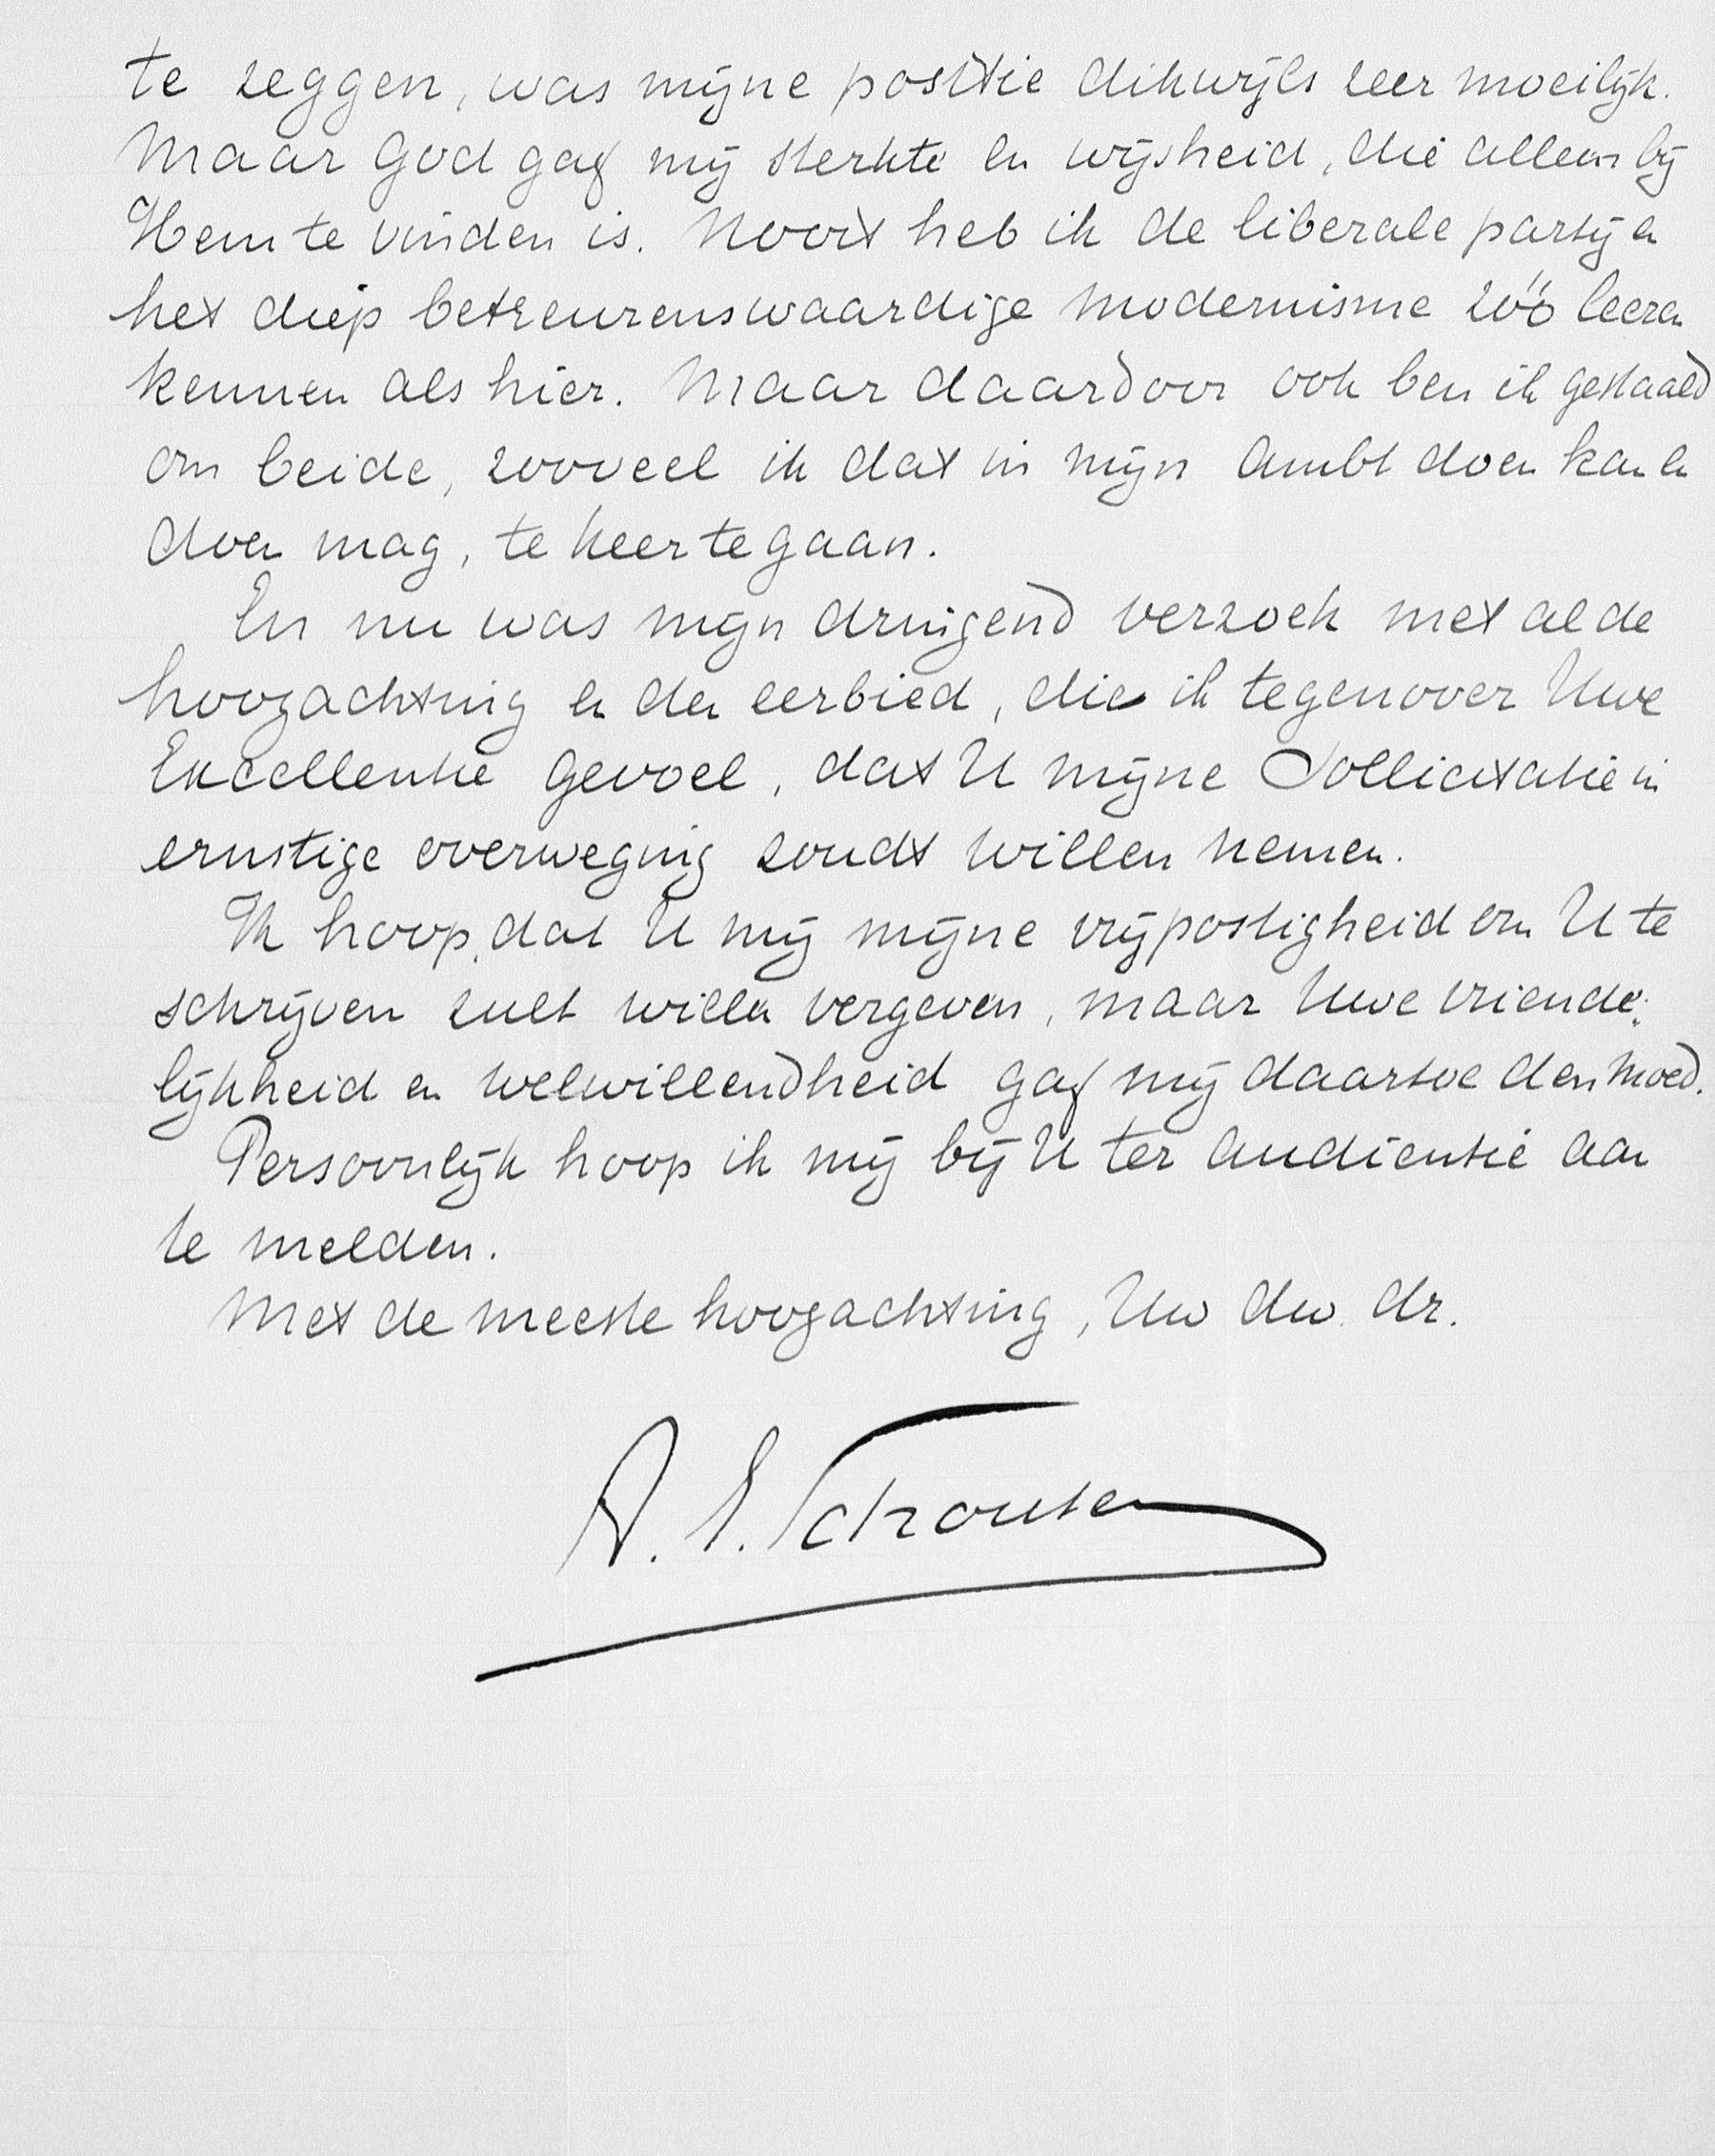 te zeggen, was mijne positie dikwijls zeer moeilijk.
Maar God gaf mij sterkte en wijsheid, die alleen bij
Hem te vinden is. Nooit heb ik de liberale partij en
het diep betreurenswaardige modernisme zóó leeren
kennen als hier. Maar daardoor ook ben ik gestaald
om beide, zooveel ik dat in mijn ambt doen kan en
doen mag, te keer te gaan.
En nu was mijn dringend verzoek met al de
hoogachting en den eerbied, die ik tegenover Uwe
Excellentie gevoel, dat U mijne Sollicitatie in
ernstige overweging zoudt willen nemen.
Ik hoop, dat U mij mijne vrijpostigheid om U te
schrijven zult willen vergeven, maar Uwe vriende-
lijkheid en welwillendheid gaf mij daartoe den moed.
Persoonlijk hoop ik mij bij U ter audientie aan
te melden.
Met de meeste hoogachting, Uw dw. dr.
A. E. Schouten